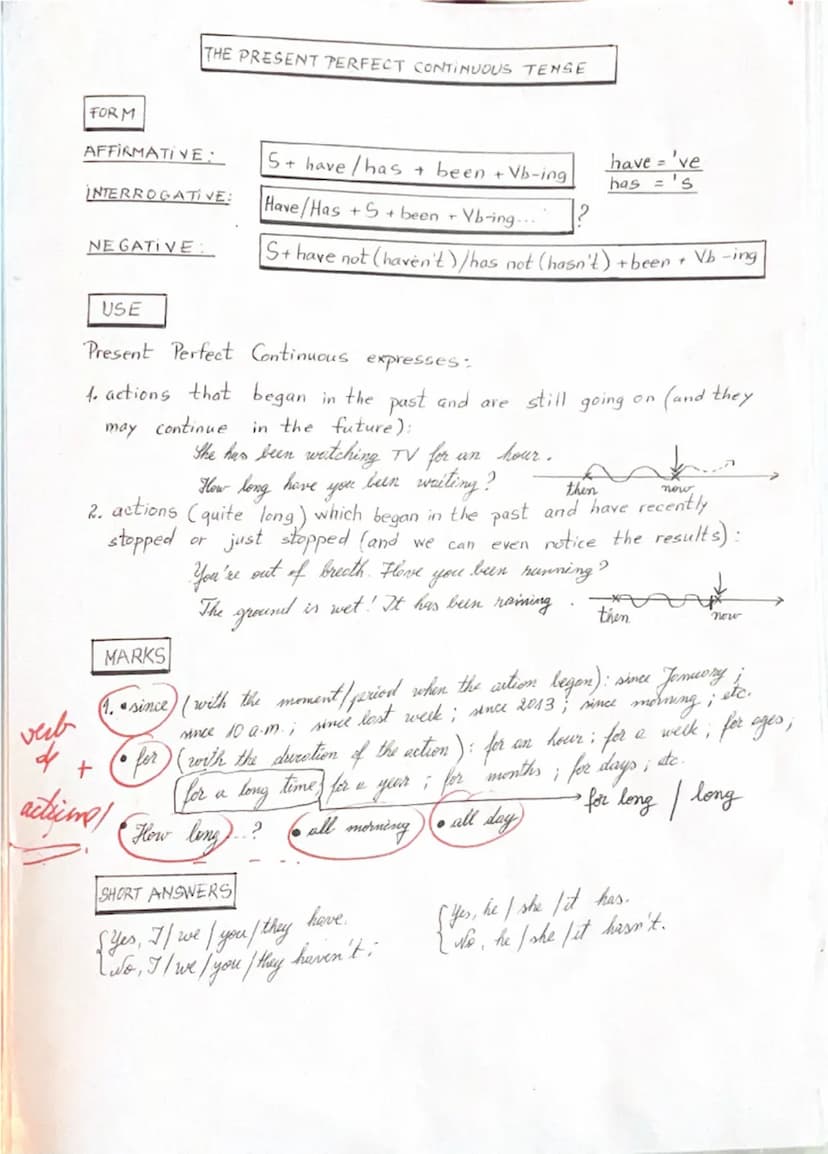 THE PRESENT PERFECT CONTINUOUS TENSE
FORM
AFFIRMATIVE:
S + have/has + been + Vb-ing
have = 've
has = 's
INTERROGATIVE:
Have/Has + S + been + Vb-ing... ?
NEGATIVE:
S + have not (haven't)/has not (hasn't) + been + Vb-ing
USE
Present Perfect Continuous expresses:
1. actions that began in the past and are still going on (and they
may continue in the future):
She has been watching TV for an hour.
How long have you been waiting?
then now
2. actions (quite long) which began in the past and have recently
stopped or just stopped (and we can even notice the results):
You're out of breath. Have you been running?
The ground is wet! It has been raining.
then now
MARKS
1. • since (with the moment/period when the action began): since January;
since 10 a.m.; since last week; since 2013; since morning; etc.
verb
de +
acțiune!
• for (with the duration of the action): for an hour; for a week; for ages;
for a long time; for a year; for months; for days; etc.
for long / long
• How long...? • all morning • all day
SHORT ANSWERS
Yes, I/we/you/they have.
No, I/we/you/they haven't;
Yes, he/she/it has.
No, he/she/it hasn't.